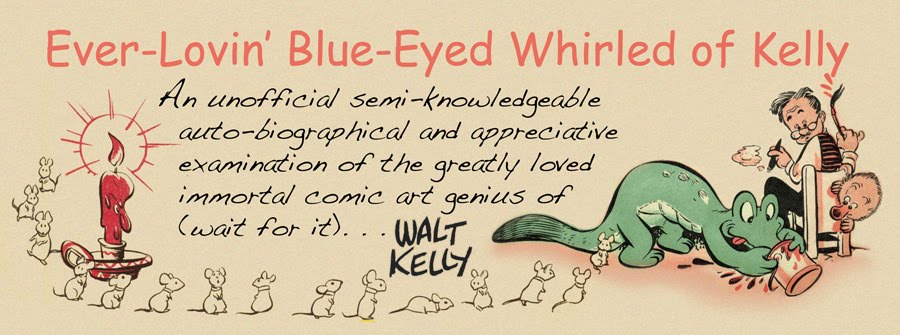 Ever-Lovin' Blue-Eyed Whirled of Kelly
An unofficial semi-knowledgeable
auto-biographical and appreciative
examination of the greatly loved
immortal comic art genius of
(wait for it)... WALT
KELLY